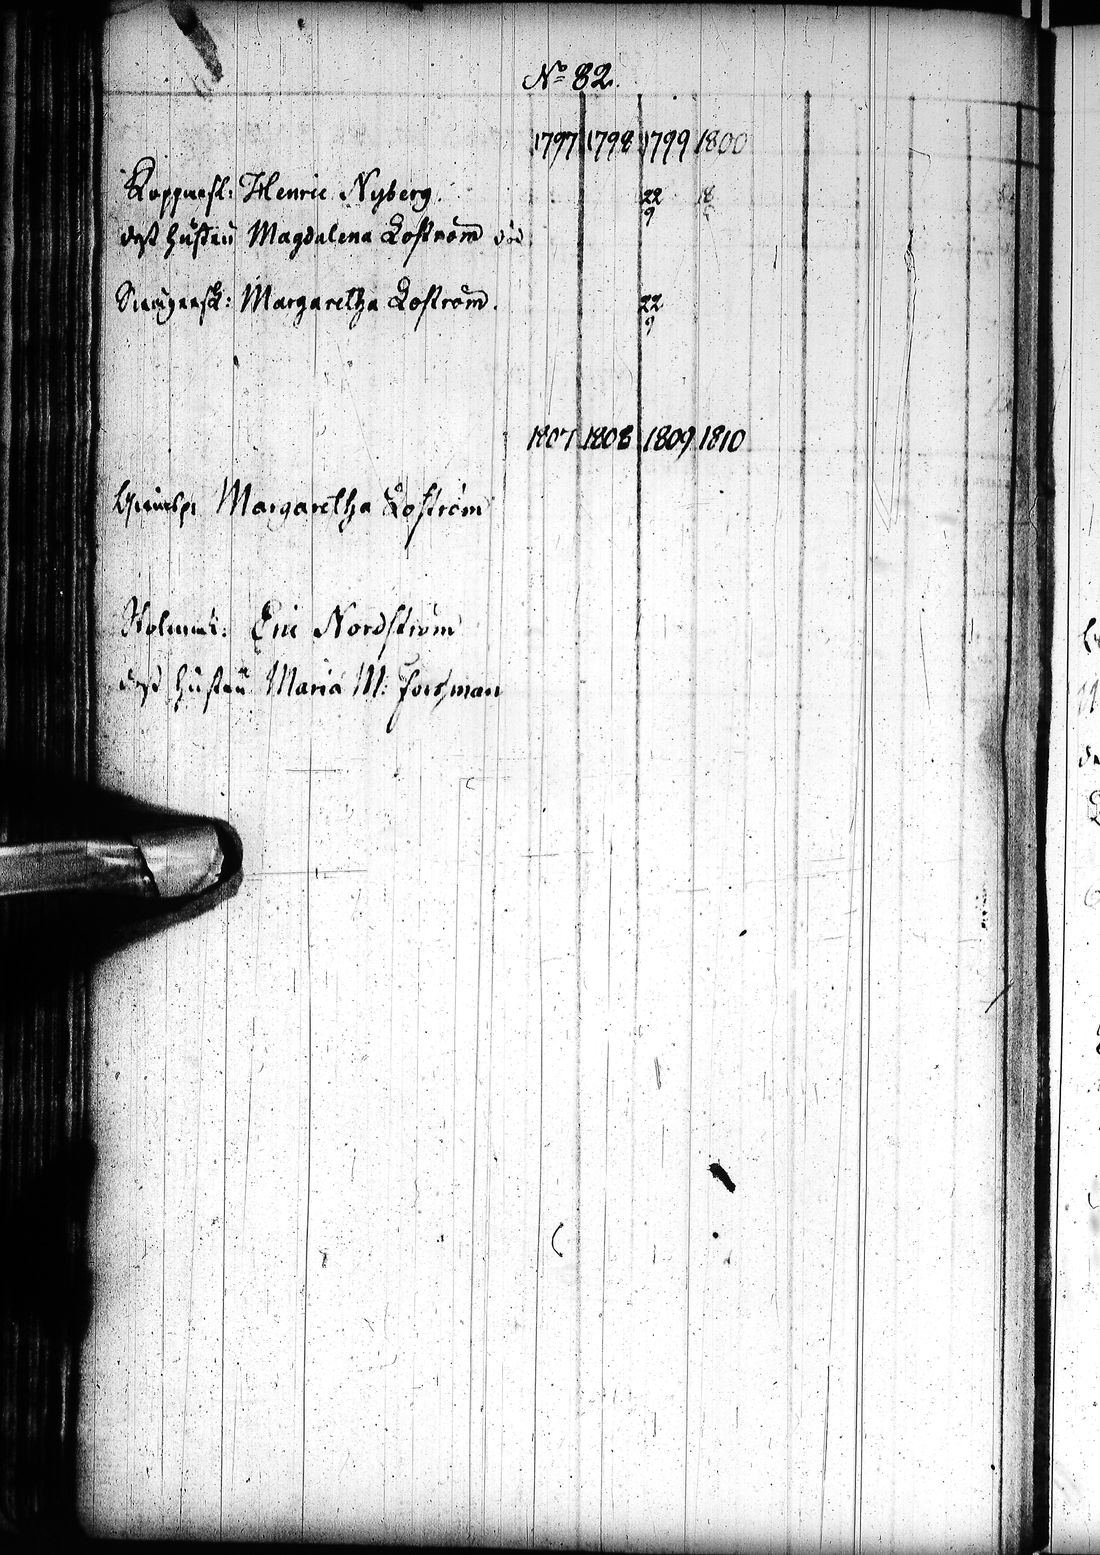 No 82.
1797 1798 1799 1800
Kopparsl: Henric Nyberg. 22/9 18/5
dess hustru Magdalena Loström död
Margaretha Loström. 22/9
1807 1808 1809 1810
Margaretha Loström
Eric Nordström
dess hustru Maria M: Forsman